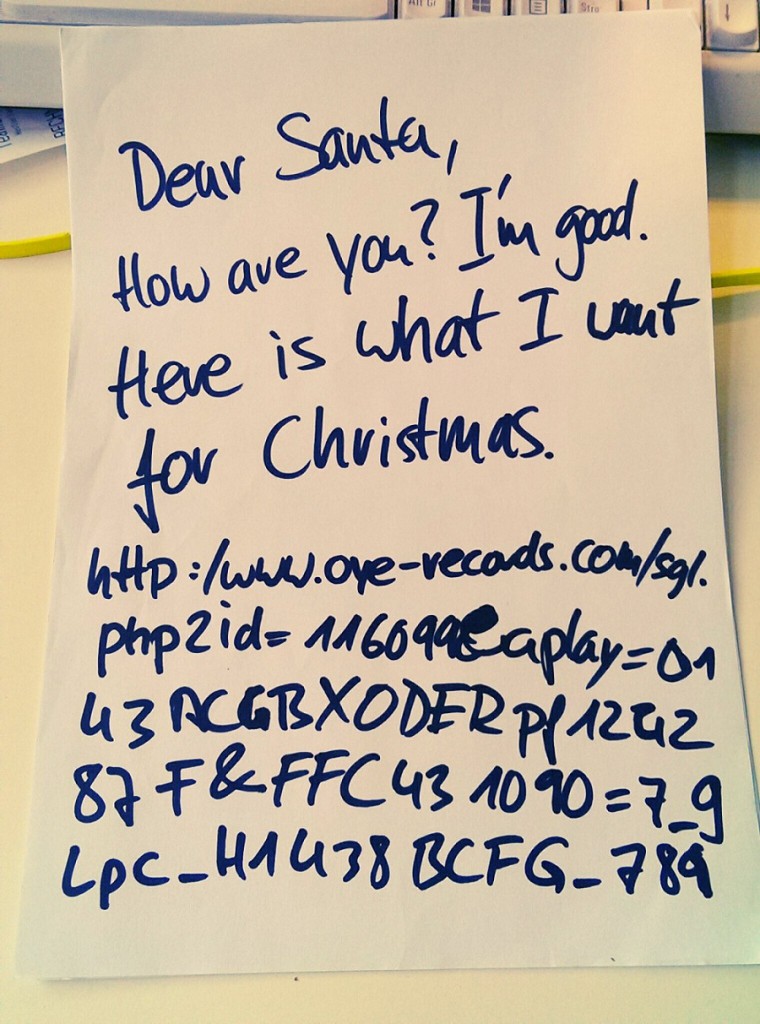 Alt Gr
Strg
Dear Santa,
How are you? I'm good.
Here is what I want
for Christmas.
http:/www.oye-records.com/sgl.
php?id=116099&aplay=01
43ACGBXODERpf1242
87F&FFC431090=7_g
Lpc_41438BCFG_789